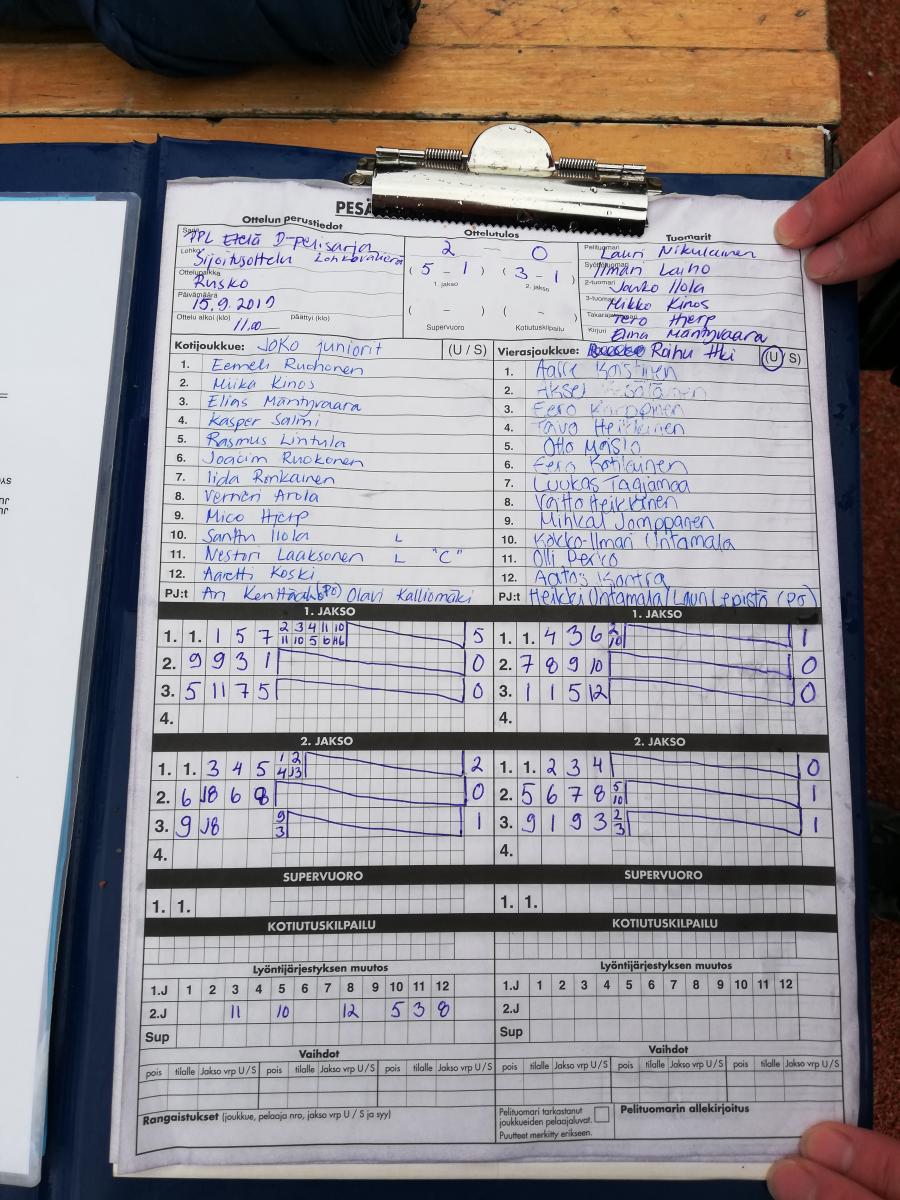 PESÄ
Ottelun perustiedot
Ottelutulos
Tuomarit
PPL Etelä D-pelisarja
Lohko
Sijoitusottelu Lohkovaliera
Ottelupaikka
Rusko
Päivämäärä
15.9.2019
Ottelu alkoi (klo) päättyi (klo)
11.00
2 — 0
( 5 - 1 ) ( 3 - 1 )
1. jakso 2. jakso
( - ) ( - )
Supervuoro Kotiutuskilpailu
Pelituomari
Lauri Nikulainen
Ilmari Laiho
2-tuomari
Jouko Ilola
3-tuomari
Mikko Kinos
Takarajatuomari
Tero Hjerp
Kirjuri
Elina Mäntyvaara
Kotijoukkue: JoKo juniorit (U / S)
1. Eemeli Ruohonen
2. Miika Kinos
3. Elias Mäntyvaara
4. Kasper Salmi
5. Rasmus Lintula
6. Joacim Ruokonen
7. Iida Ronkainen
8. Verneri Arola
9. Mico Hjerp
10. Santtu Ilola L
11. Nestori Laaksonen L "C"
12. Aaretti Koski
PJ:t Ari (Po) Olavi Kalliomäki
Vierasjoukkue: Roihu Hki (U / S)
1.
2. Aksel
3. Eero
4. Taivo Heikkinen
5. Otto
6. Eero Kotilainen
7. Luukas
8. Voitto Heikkinen
9. Mihkal Jomppanen
10. Kokko-Ilmari Untamala
11. Olli
12. Aatos Kontra
PJ:t Heikki Untamala / Lauri Lepistö (PO)
1. JAKSO
1. 1. 1 5 7 2 3 4 11 10 5
11 10 5 6
2. 9 9 3 1 0
3. 5 11 7 5 0
4.
1. JAKSO
1. 1. 4 3 6 2 1
10
2. 7 8 9 10 0
3. 1 1 5 12 0
4.
2. JAKSO
1. 1. 3 4 5 1 2 2
4 J3
2. 6 J8 6 8 0
3. 9 J8 9 1
3
4.
2. JAKSO
1. 1. 2 3 4 0
2. 5 6 7 8 5 1
10
3. 9 1 9 3 2 1
3
4.
SUPERVUORO
1. 1.
SUPERVUORO
1. 1.
KOTIUTUSKILPAILU
KOTIUTUSKILPAILU
Lyöntijärjestyksen muutos
1.J 1 2 3 4 5 6 7 8 9 10 11 12
2.J 11 10 12 5 3 8
Sup
Lyöntijärjestyksen muutos
1.J 1 2 3 4 5 6 7 8 9 10 11 12
2.J
Sup
Vaihdot
pois tilalle Jakso vrp U / S pois tilalle Jakso vrp U / S pois tilalle Jakso vrp U / S
Vaihdot
pois tilalle Jakso vrp U / S pois tilalle Jakso vrp U / S pois tilalle Jakso vrp U / S
Rangaistukset (joukkue, pelaaja nro, jakso vrp U / S ja syy)
Pelituomari tarkastanut
joukkueiden pelaajaluvat.
Puutteet merkitty erikseen.
Pelituomarin allekirjoitus